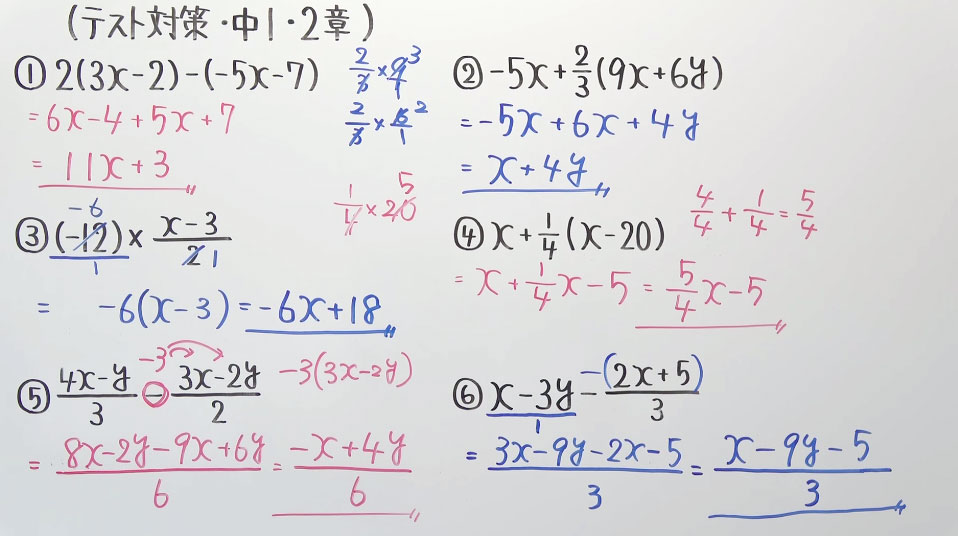 (テスト対策・中1・2章)
① 2(3x-2)-(-5x-7)
=6x-4+5x+7
= 11x+3
2/3×9/1 3
2/3×6/1 2
② -5x+2/3(9x+6y)
=-5x+6x+4y
= x+4y
③ (-12)× x-3/2
-6
1
1
= -6(x-3)=-6x+18
1/4×20 5
④ x+1/4(x-20)
4/4+1/4=5/4
= x+1/4x-5=5/4x-5
⑤ 4x-y/3 - 3x-2y/2
-3
-3(3x-2y)
= 8x-2y-9x+6y/6 = -x+4y/6
⑥ x-3y - 2x+5/3
1
-( )
= 3x-9y-2x-5/3 = x-9y-5/3